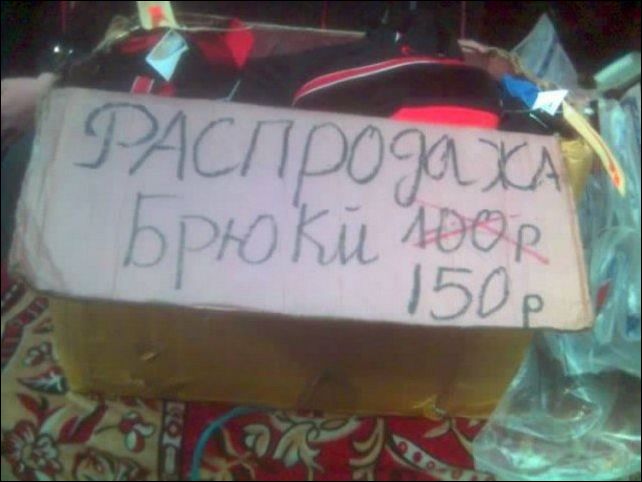 РАСПРОдАЖА
БРЮКИ 100р
150р